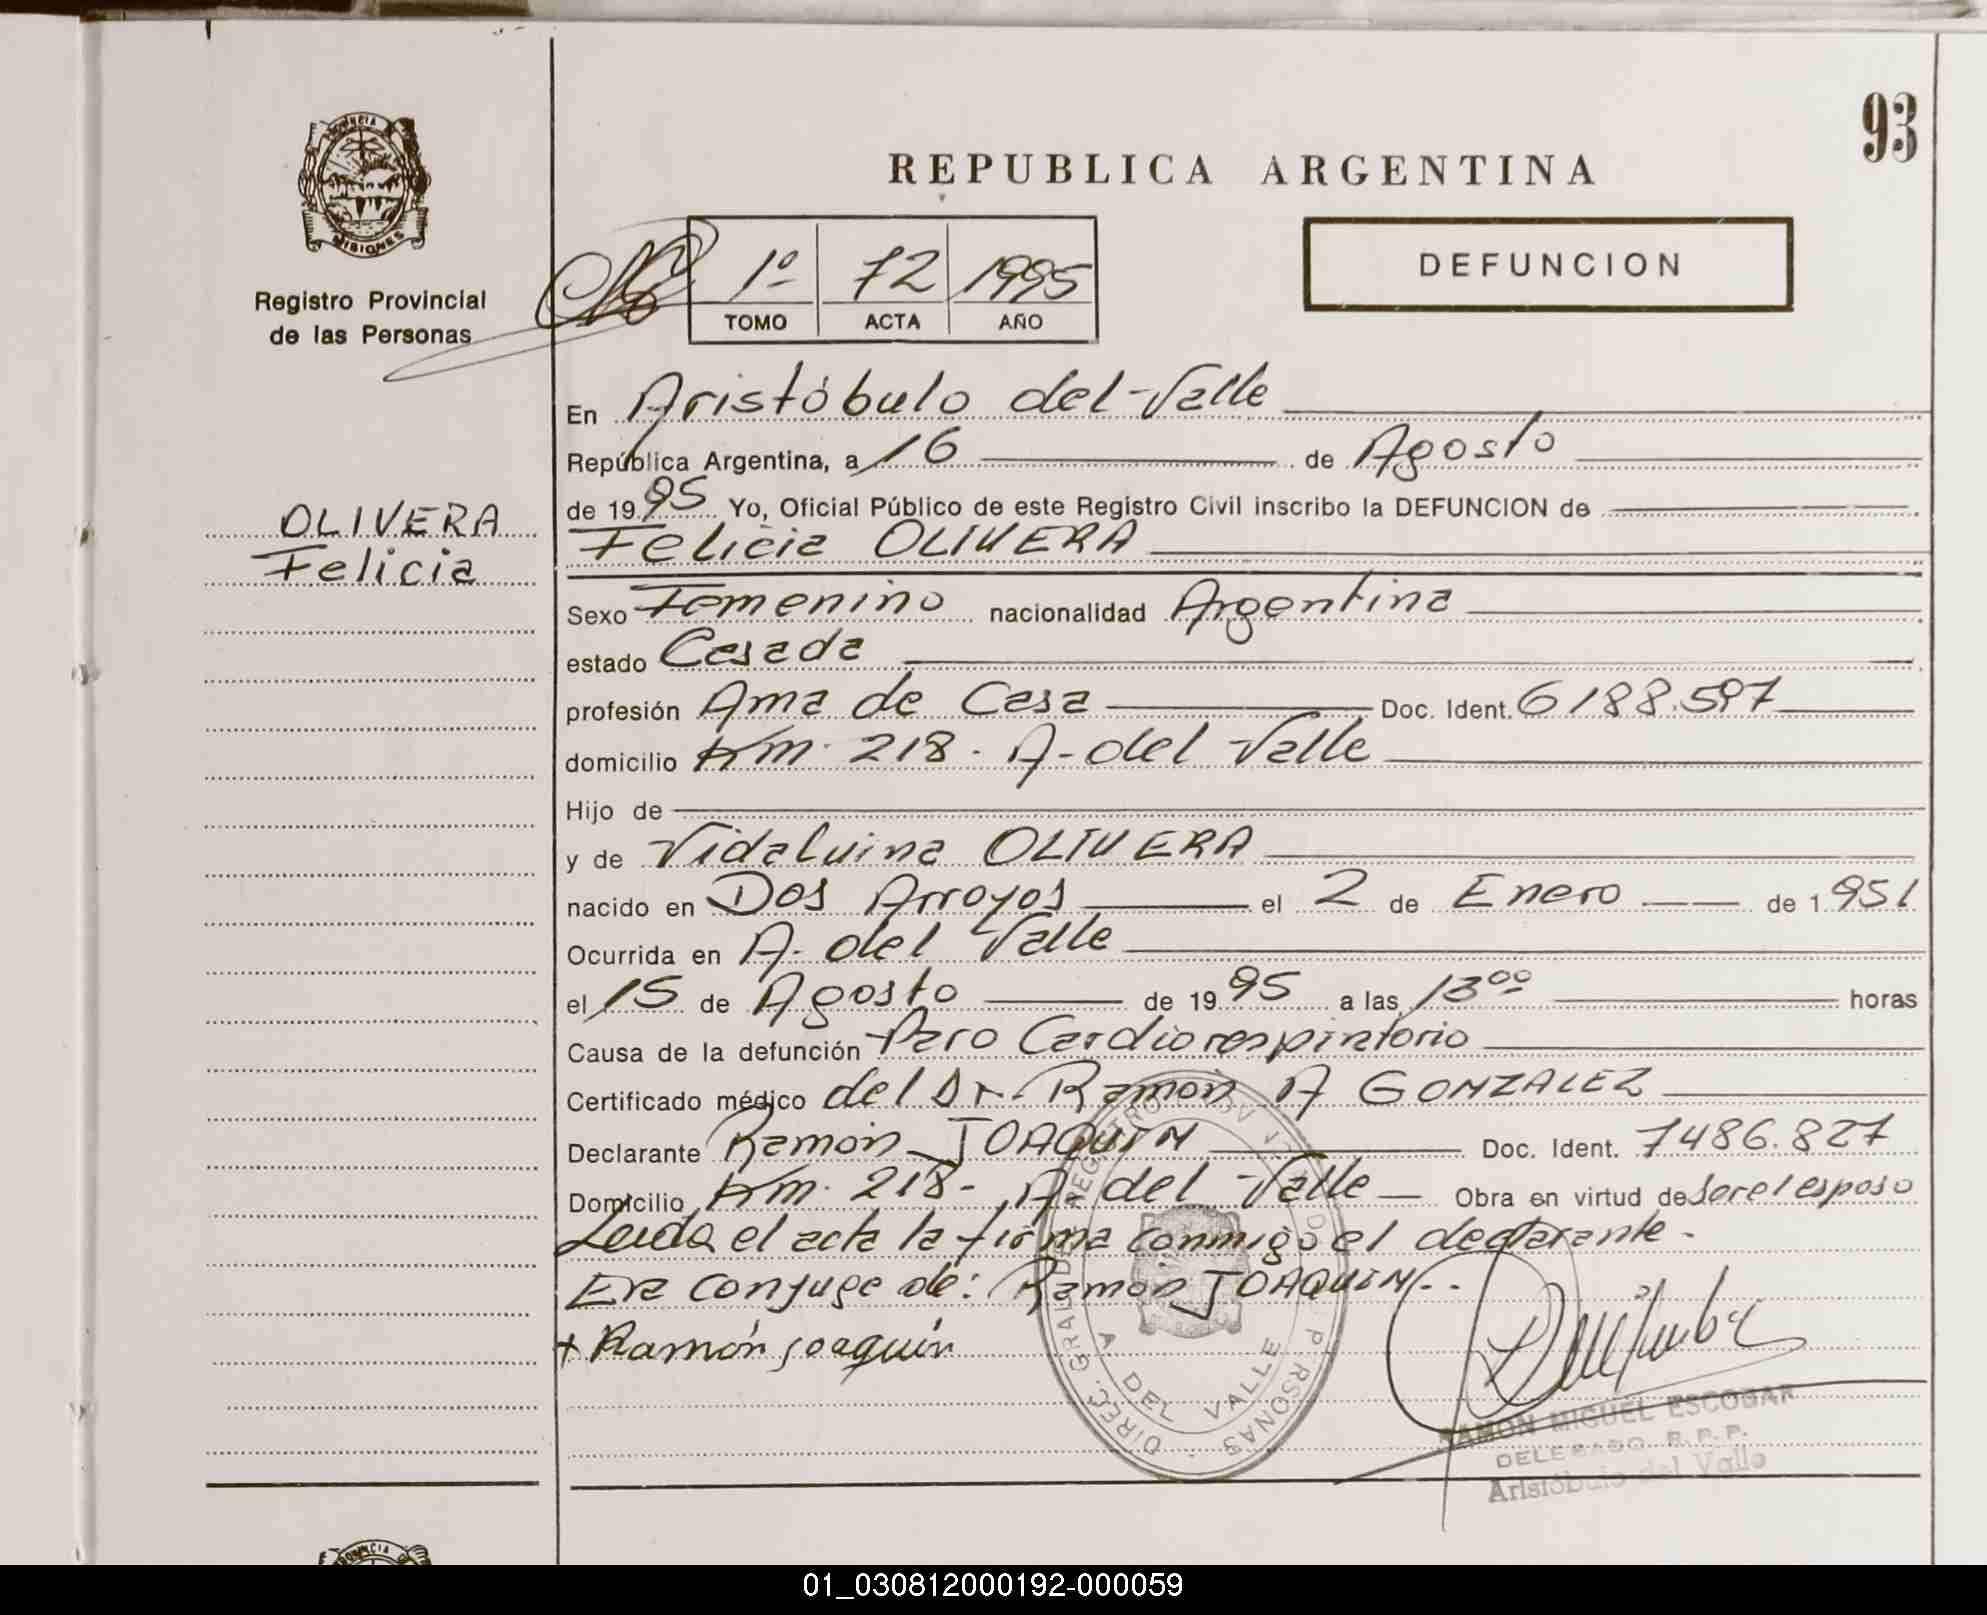 93
PROVINCIA
MISIONES
Registro Provincial
de las Personas
REPUBLICA ARGENTINA
1º 72 1995
TOMO ACTA AÑO
DEFUNCION
OLIVERA
Felicia
En Aristóbulo del Valle
República Argentina, a 16 de Agosto
de 1995 Yo, Oficial Público de este Registro Civil inscribo la DEFUNCION de
Felicia OLIVERA
Sexo Femenino nacionalidad Argentina
estado Casada
profesión Ama de Casa Doc. Ident. 6188.597
domicilio Km. 218. A. del Valle
Hijo de
y de Vidalvina OLIVERA
nacido en Dos Arroyos el 2 de Enero de 1951
Ocurrida en A. del Valle
el 15 de Agosto de 1995 a las 13ºº horas
Causa de la defunción Paro Cardiorespiratorio
Certificado médico del Dr. Ramon A GONZALEZ
Declarante Ramón JOAQUIN Doc. Ident. 7486.827
Domicilio Km. 218- A. del Valle Obra en virtud de ser el esposo
Leida el acta la firma conmigo el declarante.
Era conjuge de: Ramon JOAQUIN..
+ Ramón Joaquín
DIREC. GRAL DE REGISTRO PERSONAS
A DEL VALLE
RAMON MIGUEL ESCOBAR
DELEGADO R. P. P.
Aristóbulo del Valle
PROVINCIA
01_030812000192-000059